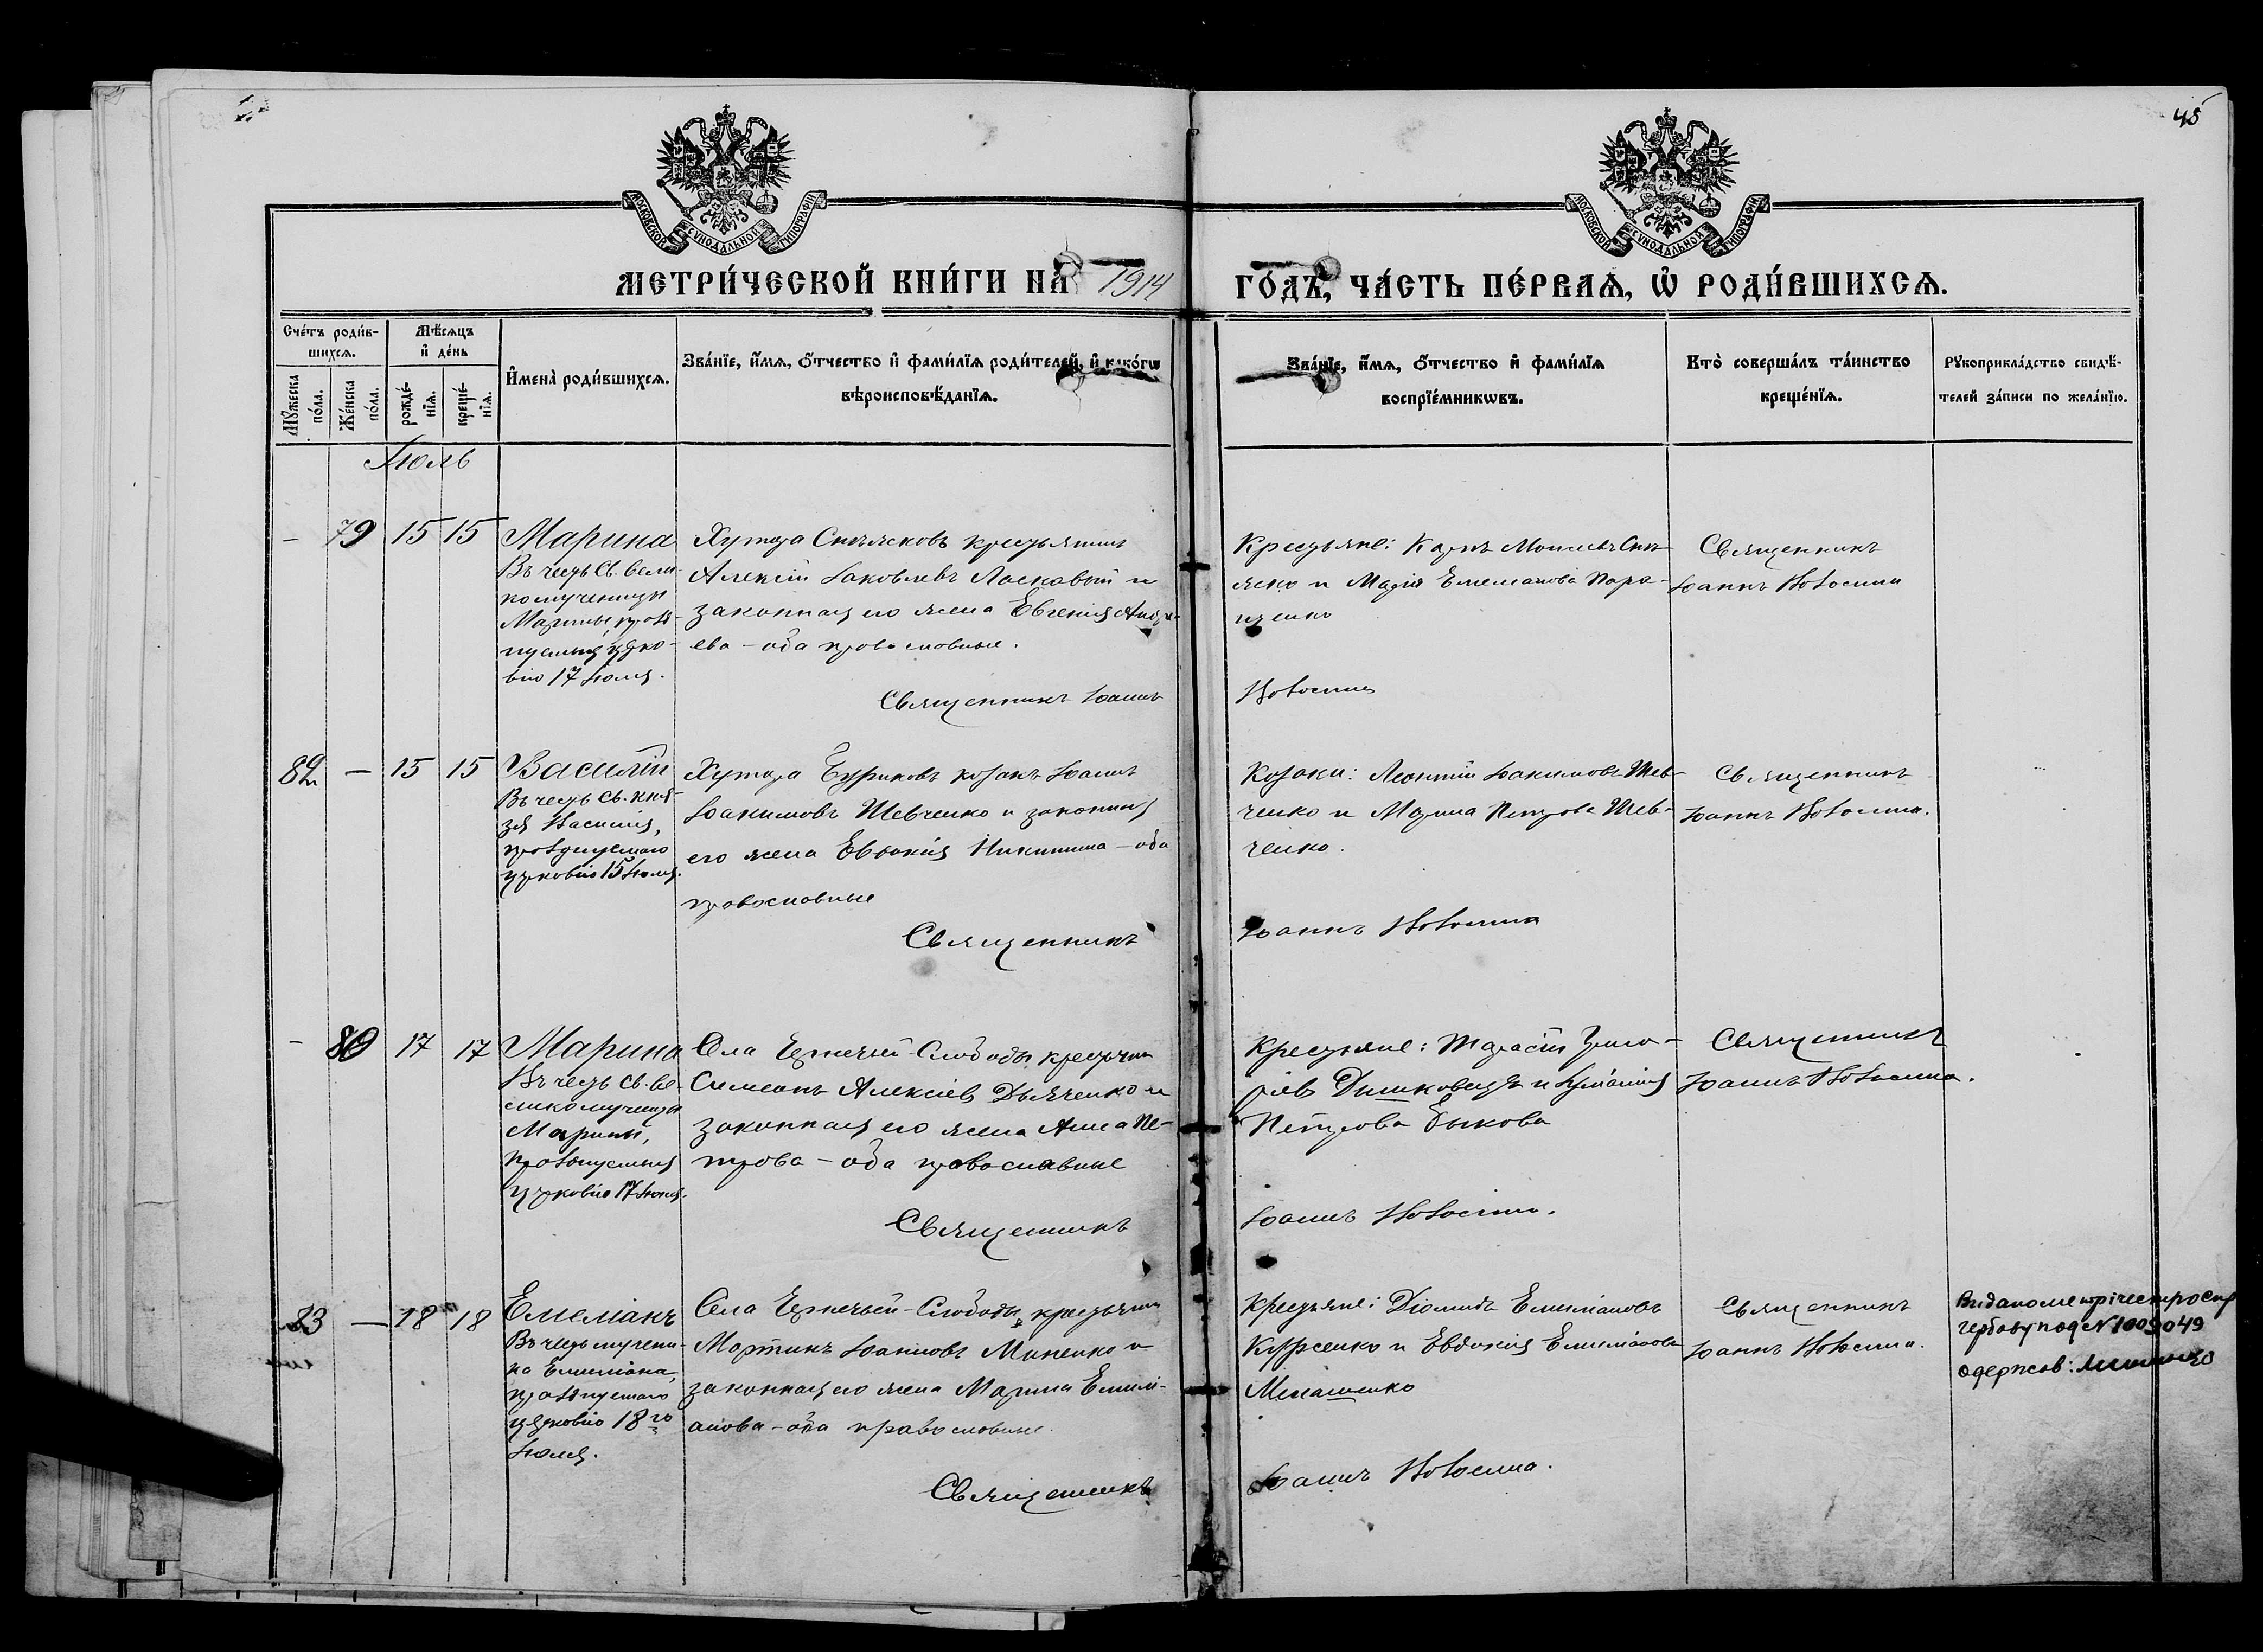 45
МОСКОВСКОЙ СѴНОДАЛЬНОЙ ТИПОГРАФІИ
МОСКОВСКОЙ СѴНОДАЛЬНОЙ ТИПОГРАФІИ
МЕТРИ́ЧЕСКОЙ КНИ́ГИ НА̀ 1914 ГО́ДЪ, ЧА́СТЬ ПЕ́РВАѦ, Ѡ҆ РОДИ́ВШИХСѦ.
Сче́тъ роди́в-
шихсѧ.
Мꙋ́жеска
по́ла.
Же́нска
по́ла.
Мѣ́сѧцъ
и҆ де́нь
рожде́-
нїѧ.
креще́-
нїѧ.
И҆мена̀ роди́вшихсѧ.
Зва́нїе, и҆́мѧ, ѻ҆́тчество и҆ фами́лїѧ роди́телей, и҆ како́гѡ
вѣроисповѣ́данїѧ.
Зва́нїе, и҆́мѧ, ѻ҆́тчество и҆ фами́лїѧ
воспрїе́мникѡвъ.
Кто̀ соверша́лъ та́инство
креще́нїѧ.
Рꙋкоприкла́дство свидѣ́-
телей за́писи по жела́нїю.
Іюль
– 79 15 15
Марина
Въ честь Св. вели-
комученицы
Марины, празд-
нуемыя церко-
вію 17 Іюля.
Хутора крестьянинъ
Алексій Іаковлевъ Ласкавый и
законная его жена Евгенія Андре-
ева – оба православные.
Священникъ Іоаннъ
Крестьяне: Карпъ
и Марія Емеліанова

Священникъ
Іоаннъ
82 — 15 15
Василій
Въ честь св. кня-
зя Василія,
празднуемаго
церковію 15 Іюля.
Хутора козакъ Іоаннъ
Іоакимовъ Шевченко и законная
его жена Евдокія Никитина – оба
православные
Священникъ
Козаки: Леонтій Іоакимовъ Шев-
ченко и Марина Петрова Шев-
ченко.
Іоаннъ
Священникъ
Іоаннъ
– 80 17 17
Марина
Въ честь св. ве-
ликомученицы
Марины,
празднуемыя
церковію 17 Іюля.
Села Чернечьей-Слободы крестьянинъ
Симеонъ Алексіевъ Дьяченко и
законная его жена Анна Пе-
трова – оба православные
Священникъ
Крестьяне: Тарасій Григо-
ріевъ и
Петрова Быкова
Іоаннъ
Священникъ
Іоаннъ
83 — 18 18
Емеліанъ
Въ честь мучени-
ка Емиліана,
празднуемаго
церковію 18го
Іюля.
Села Чернечьей-Слободы крестьянинъ
Мартинъ Іоанновъ Миненко и
законная его жена Марина Емили-
анова – оба православные.
Священникъ
Крестьяне: Діомидъ Емиліановъ
и Евдокія Емиліанова

Іоаннъ
Священникъ
Іоаннъ
Видано
гербову под N 1009049
одержав: